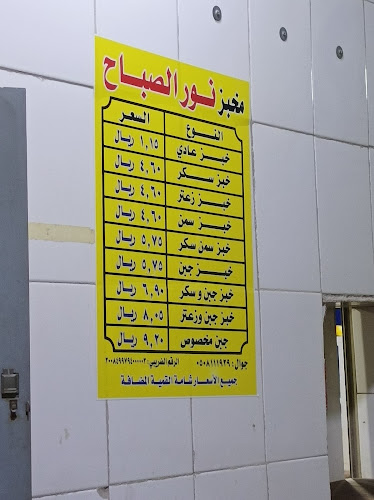 مخبز نور الصباح
النوع السعر
خبز عادي ١,١٥ ريال
خبز سكر ٤,٦٠ ريال
خبز زعتر ٤,٦٠ ريال
خبز سمن ٤,٦٠ ريال
خبز سمن سكر ٥,٧٥ ريال
خبز جبن ٥,٧٥ ريال
خبز جبن و سكر ٦,٩٠ ريال
خبز جبن وزعتر ٨,٠٥ ريال
جبن مخصوص ٩,٢٠ ريال
جوال: ٠٥٠٨١١١٩٢٩ الرقم الضريبي:
جميع الأسعار شامة القمية المضافة